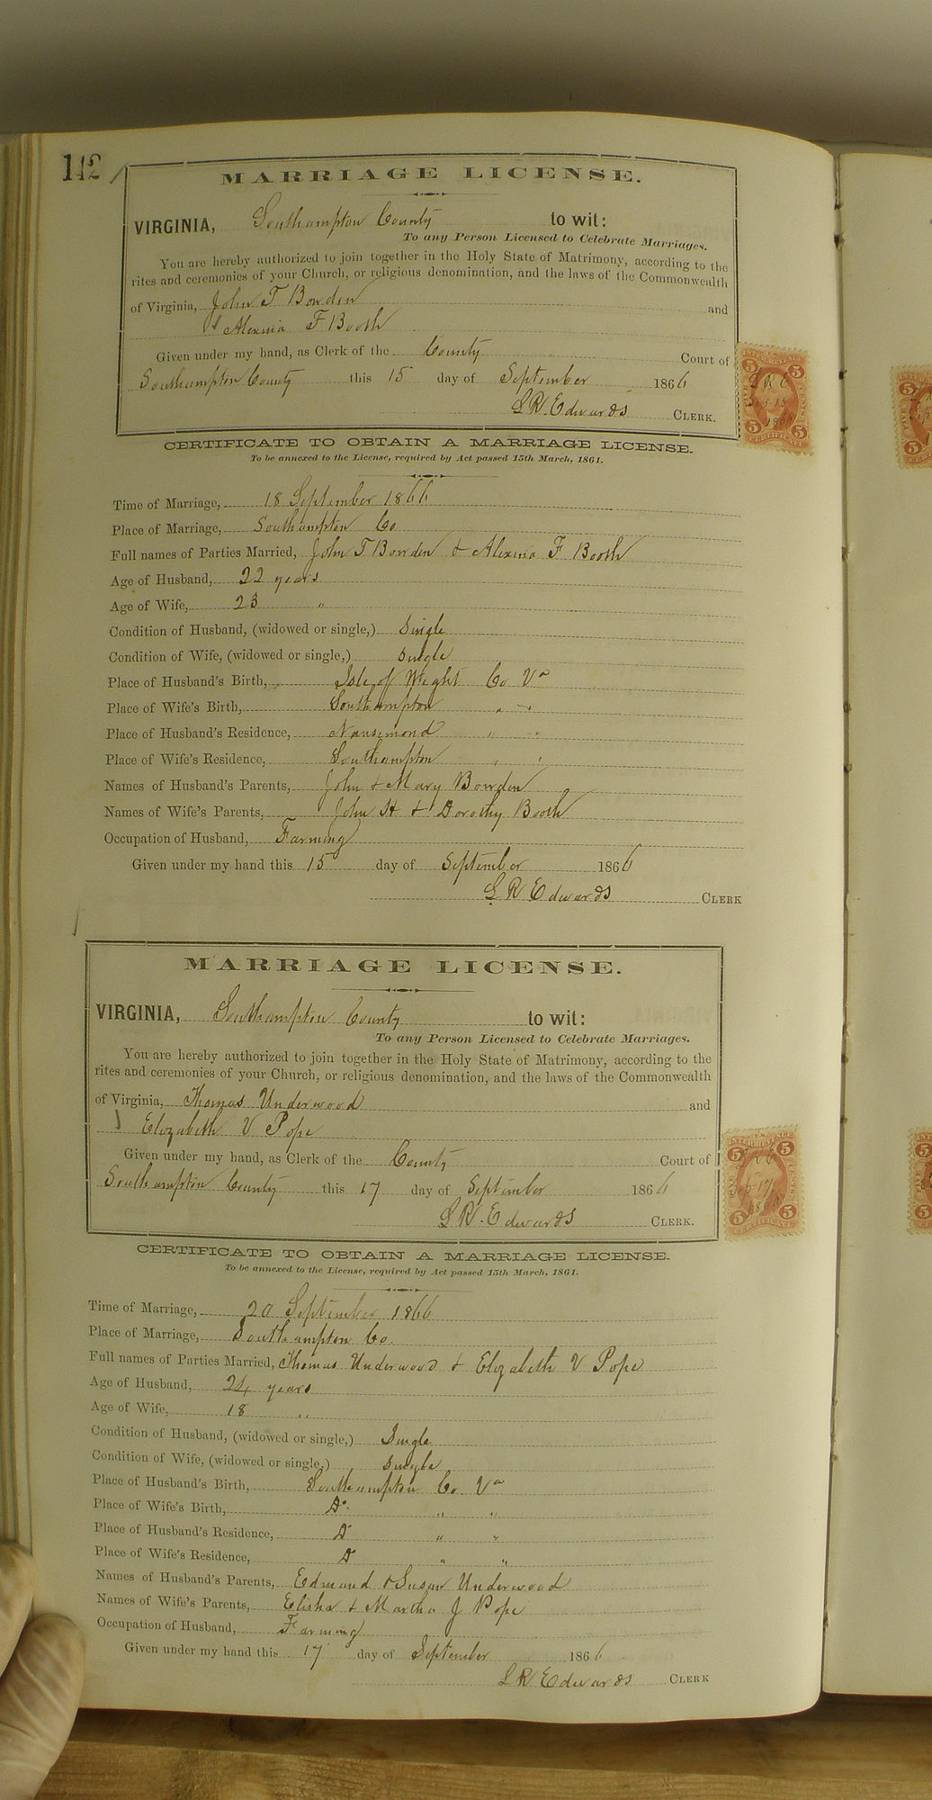 142
MARRIAGE LICENSE.
VIRGINIA, Southampton County to wit:
To any Person Licensed to Celebrate Marriages.
You are hereby authorized to join together in the Holy State of Matrimony, according to the
rites and ceremonies of your Church, or religious denomination, and the laws of the Commonwealth
of Virginia, John T Bowden and
& Alexina F Booth
Given under my hand, as Clerk of the County Court of
Southampton County this 15 day of September 1866
L R Edwards CLERK.
CERTIFICATE TO OBTAIN A MARRIAGE LICENSE.
To be annexed to the License, required by Act passed 15th March, 1861.
Time of Marriage, 18 September 1866
Place of Marriage, Southampton Co
Full names of Parties Married, John T Bowden & Alexina F Booth
Age of Husband, 22 years
Age of Wife, 23 "
Condition of Husband, (widowed or single,) Single
Condition of Wife, (widowed or single,) Single
Place of Husband's Birth, Isle of Wight Co Va
Place of Wife's Birth, Southampton " "
Place of Husband's Residence, Nansemond " "
Place of Wife's Residence, Southampton " "
Names of Husband's Parents, John & Mary Bowden
Names of Wife's Parents, John H & Dorothy Booth
Occupation of Husband, Farming
Given under my hand this 15 day of September 1866
L R Edwards CLERK
MARRIAGE LICENSE.
VIRGINIA, Southampton County to wit:
To any Person Licensed to Celebrate Marriages.
You are hereby authorized to join together in the Holy State of Matrimony, according to the
rites and ceremonies of your Church, or religious denomination, and the laws of the Commonwealth
of Virginia, Thomas Underwood and
Elizabeth V Pope
Given under my hand, as Clerk of the County Court of
Southampton County this 17 day of September 1866
L R Edwards CLERK.
CERTIFICATE TO OBTAIN A MARRIAGE LICENSE.
To be annexed to the License, required by Act passed 15th March, 1861.
Time of Marriage, 20 September 1866
Place of Marriage, Southampton Co.
Full names of Parties Married, Thomas Underwood & Elizabeth V Pope
Age of Husband, 24 years
Age of Wife, 18 "
Condition of Husband, (widowed or single,) Single
Condition of Wife, (widowed or single,) Single
Place of Husband's Birth, Southampton Co Va
Place of Wife's Birth, Do " "
Place of Husband's Residence, Do " "
Place of Wife's Residence, Do " "
Names of Husband's Parents, Edmund & Susan Underwood
Names of Wife's Parents, Elisha & Martha J Pope
Occupation of Husband, Farming
Given under my hand this 17 day of September 1866
L R Edwards CLERK